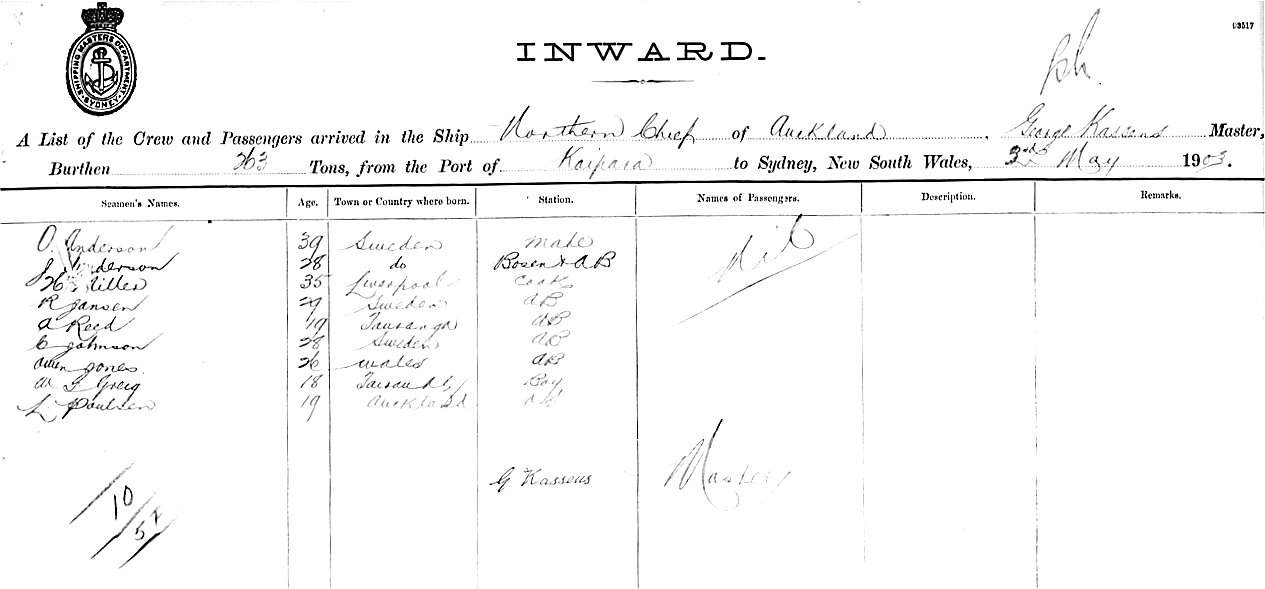 93517
SHIPPING MASTERS DEPARTMENT. SYDNEY
INWARD.
A List of the Crew and Passengers arrived in the Ship Northern Chief of Auckland. George Kassens Master,
Burthen 263 Tons, from the Port of Kaipara to Sydney, New South Wales, 3rd May 1903.
Seamen's Names. Age. Town or Country where born. Station. Names of Passengers. Description. Remarks.
O. Anderson 39 Sweden Mate Nil
J. Anderson 28 do Bosen & AB
H. Miller 35 Liverpool Cook
R Jansen 29 Sweden AB
A Reed 19 Tauranga AB
C Johnson 28 Sweden AB
Owen Jones. 26 Wales AB
W G Greig 18 Boy
L. Poulsen 19 Auckland
G Kassens Master
10